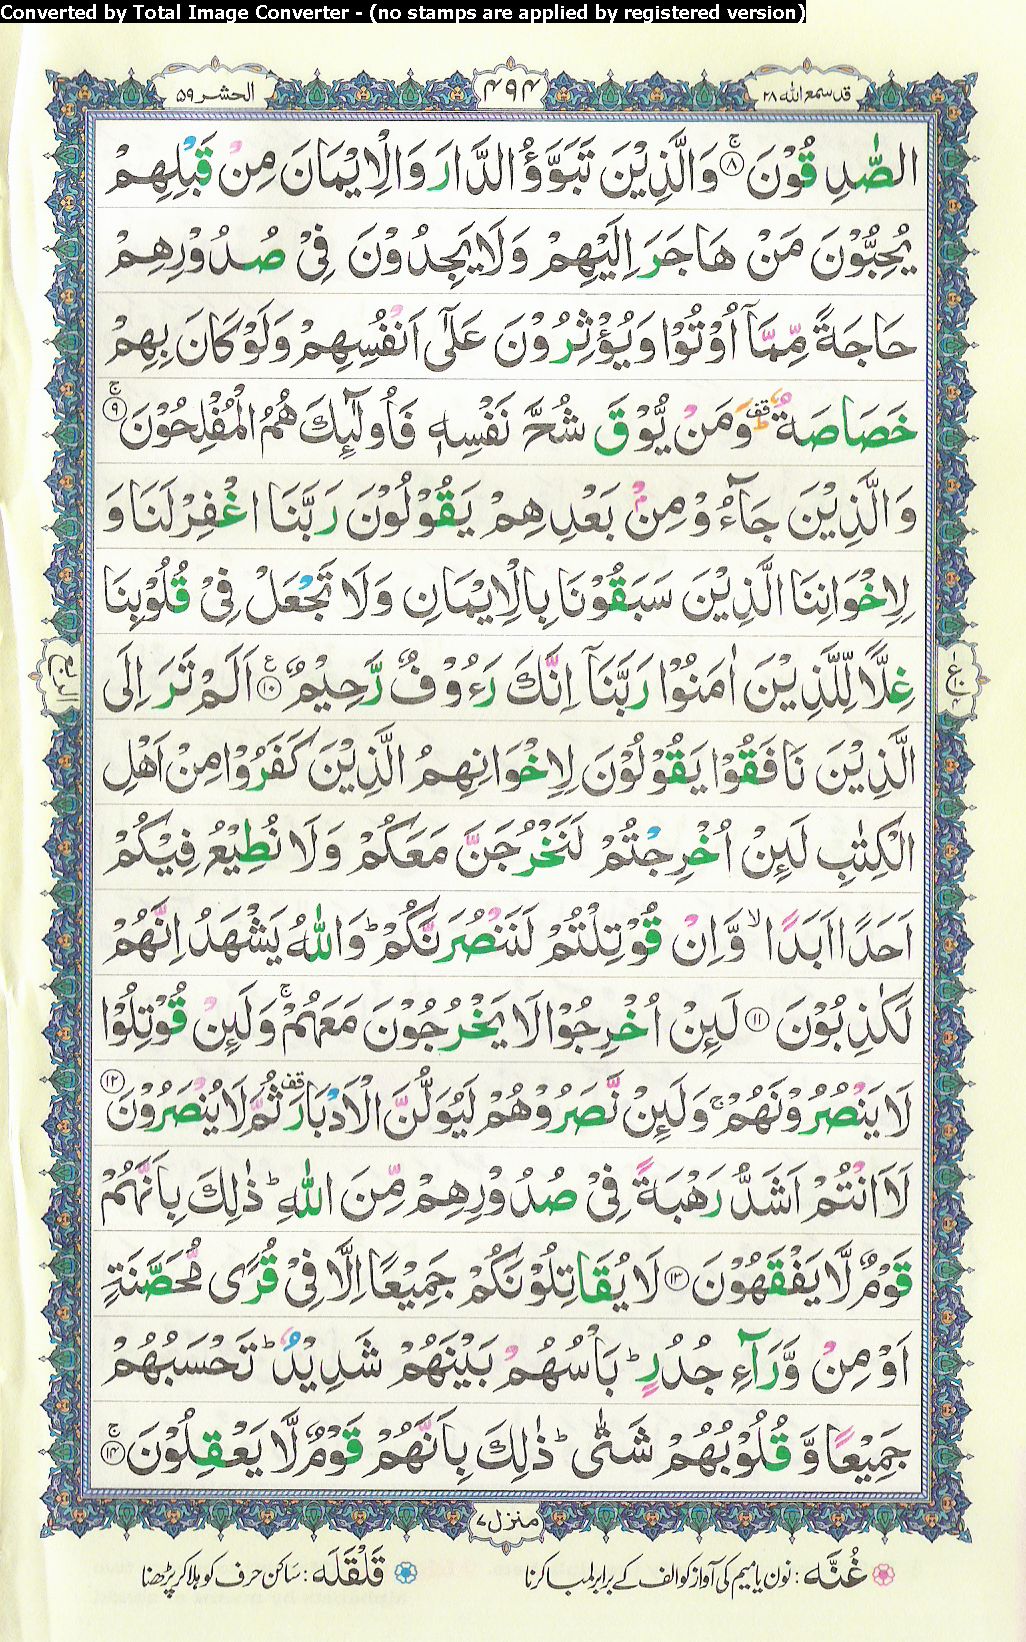 Converted by Total Image Converter - (no stamps are applied by registered version)
قد سمع الله ٢٨
٤٩٤
الحشر ٥٩
الصّٰدِقُوْنَ ۚ‏﴿۸﴾ وَالَّذِيْنَ تَبَوَّؤُ الدَّارَ وَالْاِيْمَانَ مِنْ قَبْلِهِمْ
يُحِبُّوْنَ مَنْ هَاجَرَ اِلَيْهِمْ وَلَا يَجِدُوْنَ فِيْ صُدُوْرِهِمْ
حَاجَةً مِّمَّاۤ اُوْتُوْا وَيُؤْثِرُوْنَ عَلٰٓى اَنْفُسِهِمْ وَلَوْ كَانَ بِهِمْ
خَصَاصَةٌ ؕ۫ وَمَنْ يُّوْقَ شُحَّ نَفْسِهٖ فَاُولٰٓئِكَ هُمُ الْمُفْلِحُوْنَ ۚ﴿۹﴾
وَالَّذِيْنَ جَآءُوْ مِنْۢ بَعْدِهِمْ يَقُوْلُوْنَ رَبَّنَا اغْفِرْ لَنَا وَ
لِاِخْوَانِنَا الَّذِيْنَ سَبَقُوْنَا بِالْاِيْمَانِ وَلَا تَجْعَلْ فِيْ قُلُوْبِنَا
غِلًّا لِّلَّذِيْنَ اٰمَنُوْا رَبَّنَاۤ اِنَّكَ رَءُوْفٌ رَّحِيْمٌ ﴿۱۰﴾ اَلَمْ تَرَ اِلَى
الَّذِيْنَ نَافَقُوْا يَقُوْلُوْنَ لِاِخْوَانِهِمُ الَّذِيْنَ كَفَرُوْا مِنْ اَهْلِ
الْكِتٰبِ لَئِنْ اُخْرِجْتُمْ لَنَخْرُجَنَّ مَعَكُمْ وَلَا نُطِيْعُ فِيْكُمْ
اَحَدًا اَبَدًا ۙ وَّاِنْ قُوْتِلْتُمْ لَنَنْصُرَنَّكُمْ ؕ وَاللّٰهُ يَشْهَدُ اِنَّهُمْ
لَكٰذِبُوْنَ ﴿۱۱﴾ لَئِنْ اُخْرِجُوْا لَا يَخْرُجُوْنَ مَعَهُمْ ۚ وَلَئِنْ قُوْتِلُوْا
لَا يَنْصُرُوْنَهُمْ ۚ وَلَئِنْ نَّصَرُوْهُمْ لَيُوَلُّنَّ الْاَدْبَارَ ۫ ثُمَّ لَا يُنْصَرُوْنَ ﴿۱۲﴾
لَا۠اَنْتُمْ اَشَدُّ رَهْبَةً فِيْ صُدُوْرِهِمْ مِّنَ اللّٰهِ ؕ ذٰلِكَ بِاَنَّهُمْ
قَوْمٌ لَّا يَفْقَهُوْنَ ﴿۱۳﴾ لَا يُقَاتِلُوْنَكُمْ جَمِيْعًا اِلَّا فِيْ قُرًى مُّحَصَّنَةٍ
اَوْ مِنْ وَّرَآءِ جُدُرٍ ؕ بَاْسُهُمْ بَيْنَهُمْ شَدِيْدٌ ؕ تَحْسَبُهُمْ
جَمِيْعًا وَّقُلُوْبُهُمْ شَتّٰى ؕ ذٰلِكَ بِاَنَّهُمْ قَوْمٌ لَّا يَعْقِلُوْنَ ۚ﴿۱۴﴾
منزل ٧
غُنَّہ : نون یا میم کی آواز کو الف کے برابر لمبا کرنا
قَلْقَلَہ : ساکن حرف کو ہلا کر پڑھنا